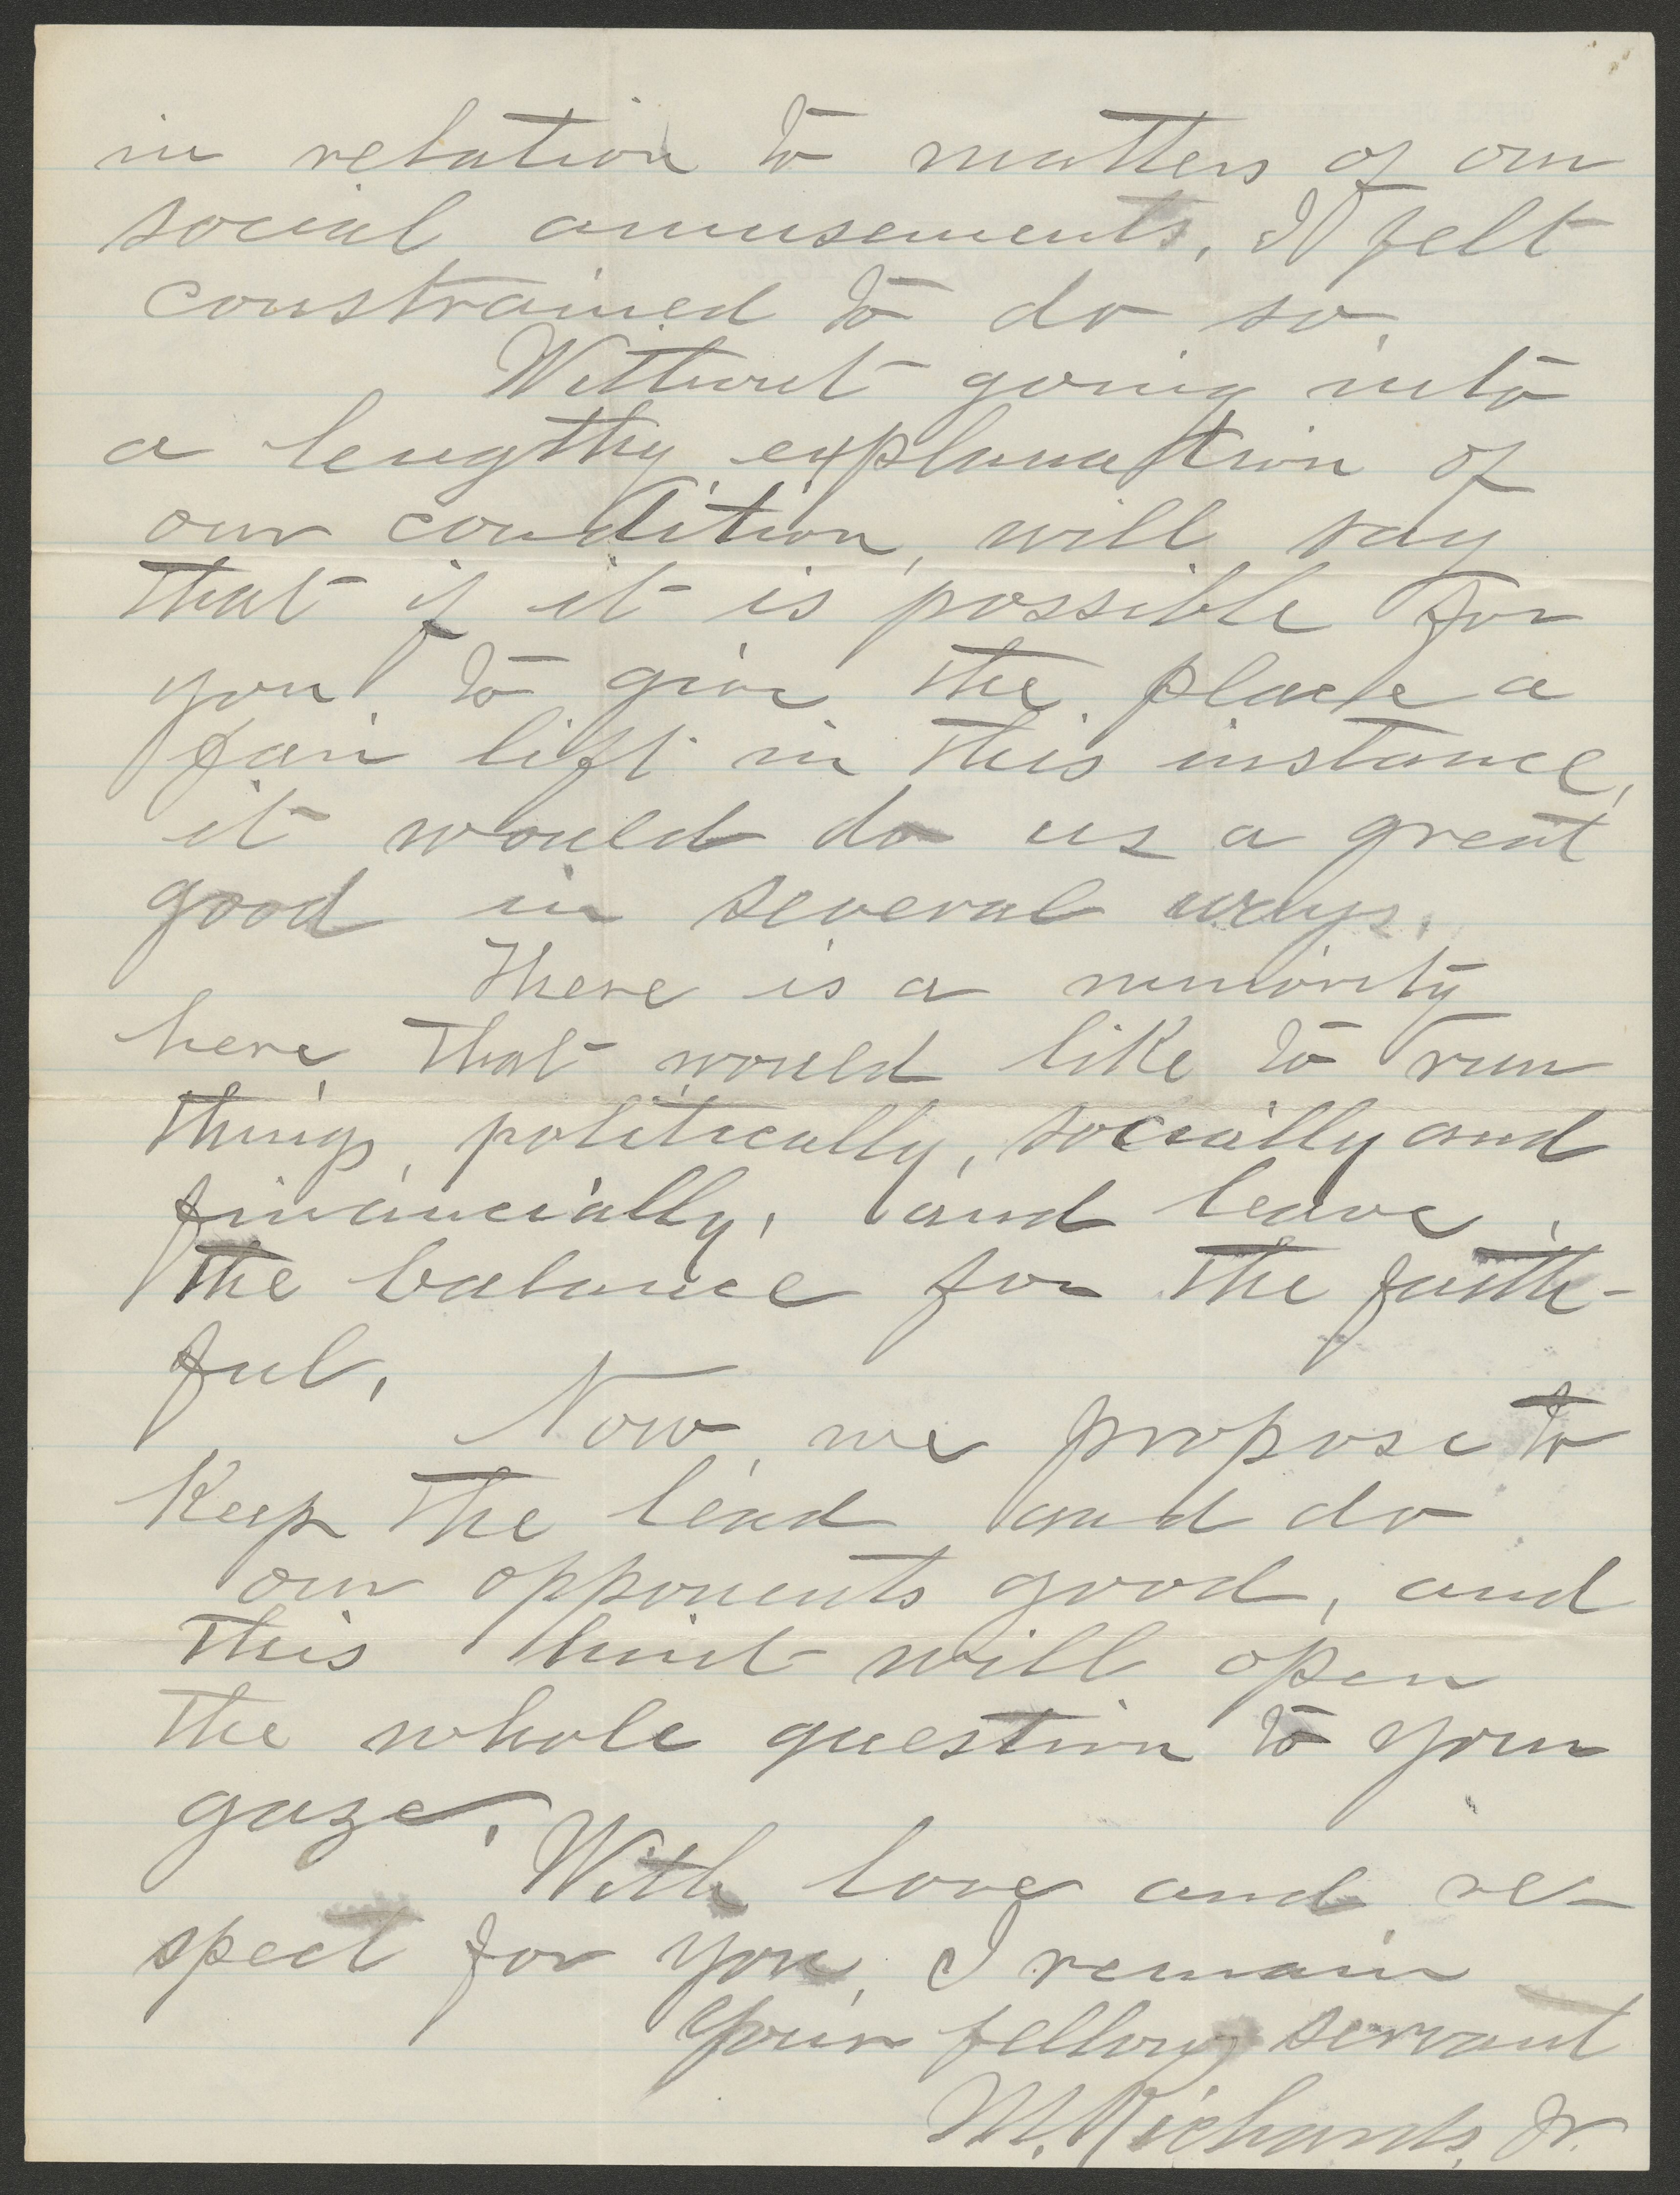 in relation to matters of our
social amusements, I felt
constrained to do so.
Without going into
a lengthy explanation of
our condition, will say
that if it is possible for
you to give the place a
fair lift in this instance,
it would do us a great
good in several ways.
There is a minority
here that would like to run
things, politically, socially and
financially, and leave
the balance for the faith-
ful. Now, we propose to
Keep the lead and do
our opponents good, and
this hint will open
the whole question to your
gaze.
With love and re-
spect for you, I remain
Your fellow servant
M. Richards, Jr.